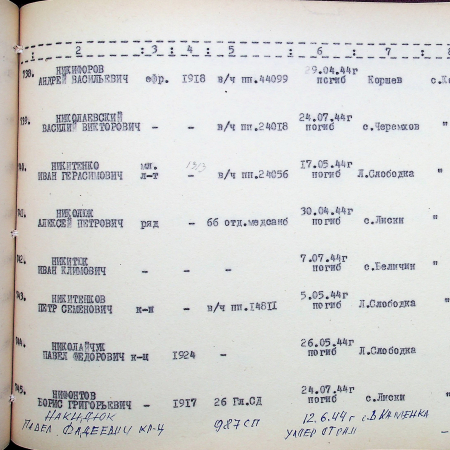 : 2 : 3 : 4 : 5 : 6 : 7 :
138. НИКИФОРОВ 29.04.44г
АНДРЕЙ ВАСИЛЬЕВИЧ ефр. 1918 в/ч пп.44099 погиб Коршев с.К
139. НИКОЛАЕВСКИЙ 24.07.44г
ВАСИЛИЙ ВИКТОРОВИЧ - - в/ч пп.24018 погиб с.Черемхов "
140. НИКИТЕНКО мл. 1913 17.05.44г
ИВАН ГЕРАСИМОВИЧ л-т - в/ч пп.24056 погиб Л.Слободка "
141. НИКОЛЮК 30.04.44г
АЛЕКСЕЙ ПЕТРОВИЧ ряд - 66 отд.медсанб погиб с.Лиски "
142. НИКИТЮК 7.07.44г
ИВАН КЛИМОВИЧ - - - погиб с.Величин "
143. НИКИТЕНКОВ 5.05.44г
ПЕТР СЕМЕНОВИЧ к-н - в/ч пп.14811 погиб Л.Слободка
144. НИКОЛАЙЧУК 26.05.44г
ПАВЕЛ ФЕДОРОВИЧ к-ц 1924 - погиб Л.Слободка "
145. НИФОНТОВ 24.07.44г
БОРИС ГРИГОРЬЕВИЧ - 1917 26 Гв.СД погиб с.Лиски "
НАКИДЮК 12.6.44г
ПАВЕЛ ФАДЕЕВИЧ кр-ц 987 СП умер от ран